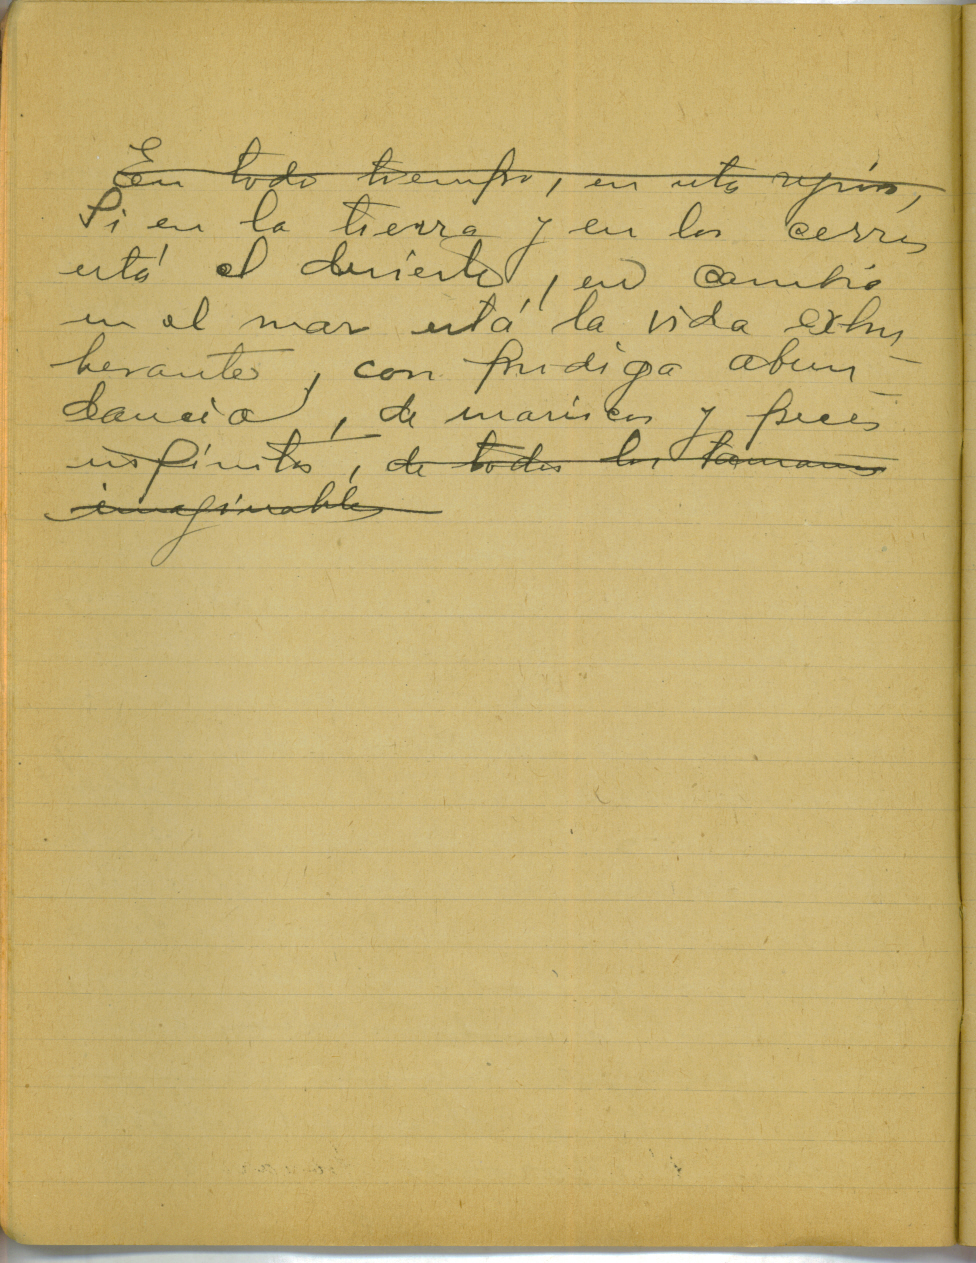 En todo tiempo, en esta región,
Si en la tierra y en los cerros
está el desierto, en cambio
en el mar está la vida exhu
berante, con pródiga abun-
dancia, de mariscos y peces
infinitos, de todos los tamaños
imaginables